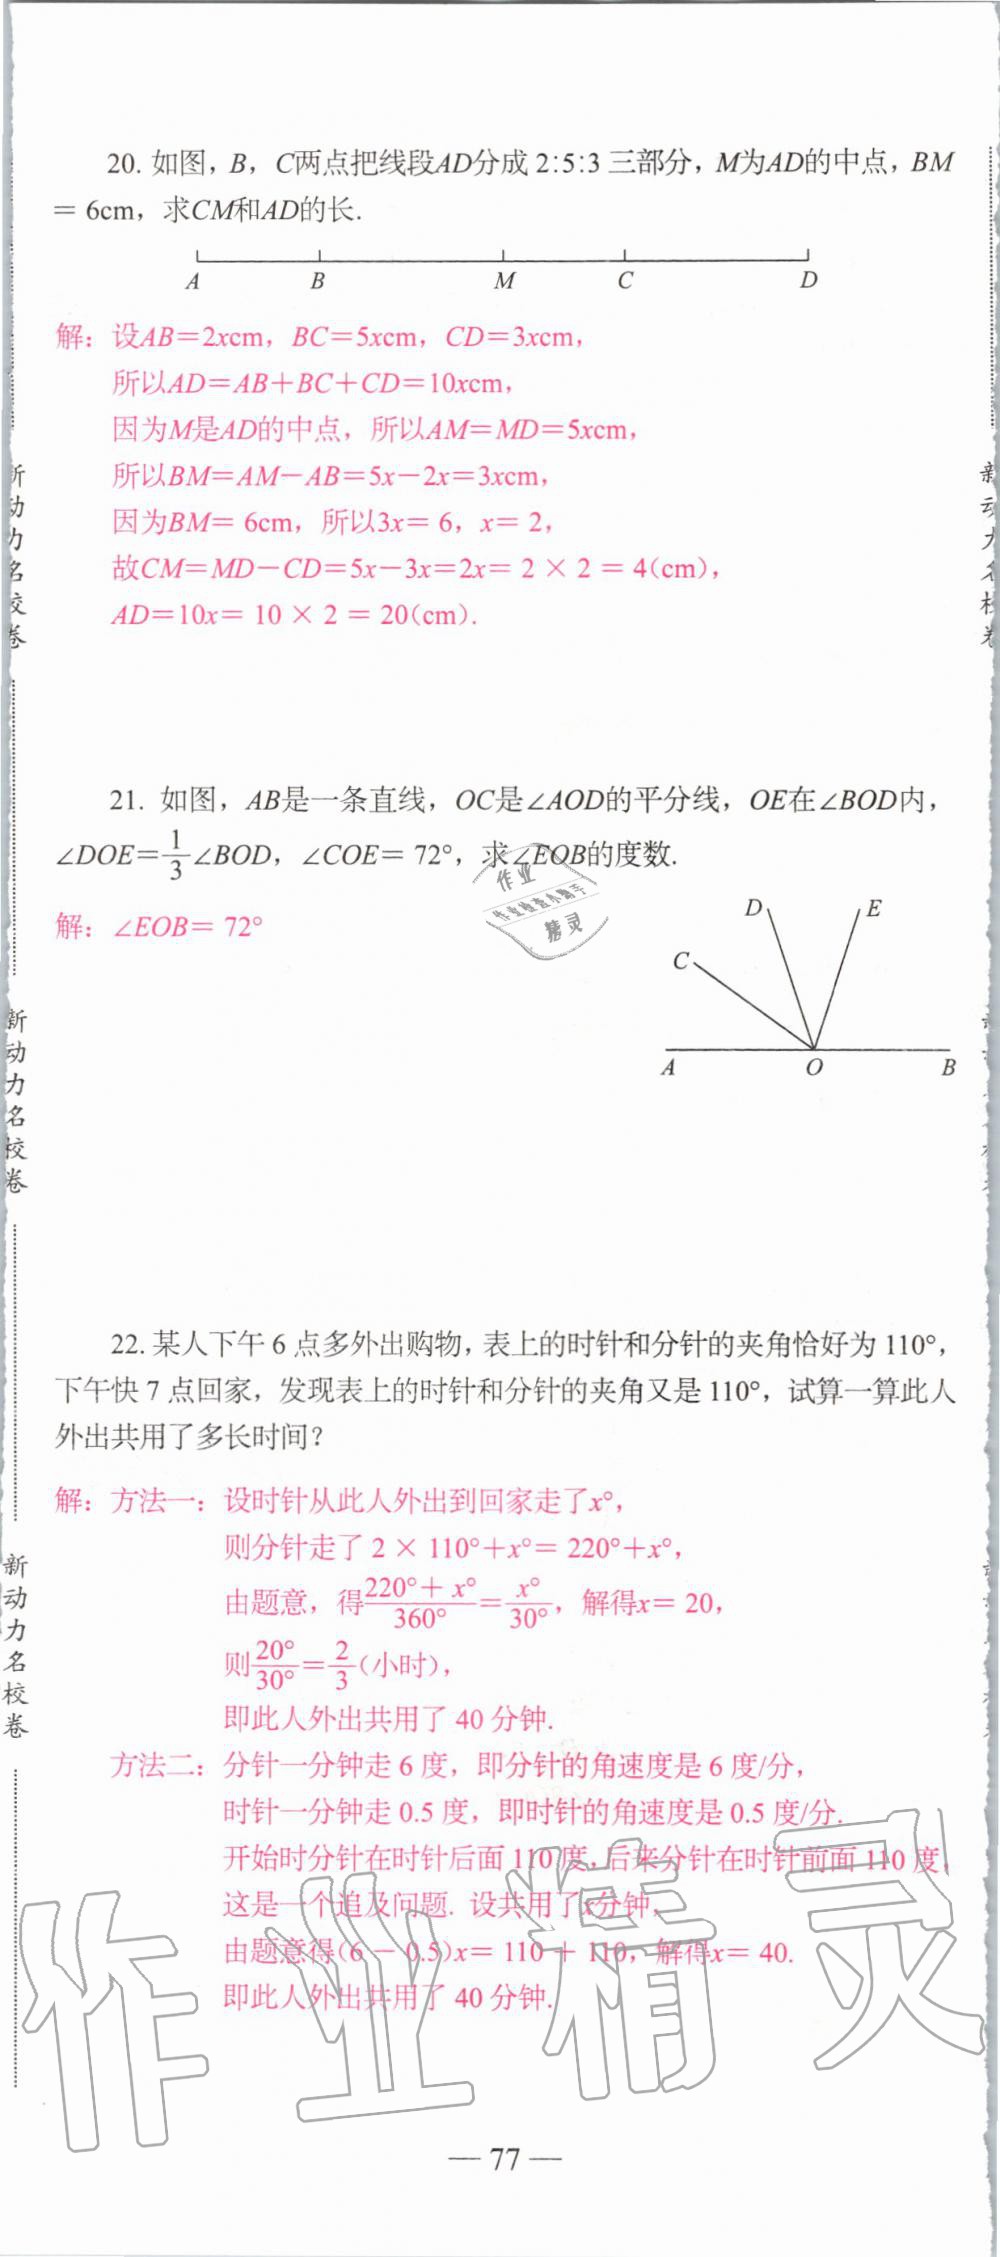 20. 如图，B，C两点把线段AD分成 2:5:3 三部分，M为AD的中点，BM
= 6cm，求CM和AD的长.
A B M C D
解：设AB=2xcm，BC=5xcm，CD=3xcm，
所以AD=AB+BC+CD=10xcm，
因为M是AD的中点，所以AM=MD=5xcm，
所以BM=AM-AB=5x-2x=3xcm，
因为BM= 6cm，所以3x= 6，x= 2，
故CM=MD-CD=5x-3x=2x= 2 × 2 = 4(cm)，
AD=10x= 10 × 2 = 20(cm).
21. 如图，AB是一条直线，OC是∠AOD的平分线，OE在∠BOD内，
∠DOE=1/3∠BOD，∠COE= 72°，求∠EOB的度数.
作业
作业检查小助手
精灵
解：∠EOB= 72°
D E
C
A O B
22. 某人下午 6 点多外出购物，表上的时针和分针的夹角恰好为 110°，
下午快 7 点回家，发现表上的时针和分针的夹角又是 110°，试算一算此人
外出共用了多长时间？
解：方法一：设时针从此人外出到回家走了x°，
则分针走了 2 × 110°+x°= 220°+x°，
由题意，得(220°+ x°)/360°=x°/30°，解得x= 20，
则20°/30°=2/3(小时)，
即此人外出共用了 40 分钟.
方法二：分针一分钟走 6 度，即分针的角速度是 6 度/分，
时针一分钟走 0.5 度，即时针的角速度是 0.5 度/分.
开始时分针在时针后面 110 度，后来分针在时针前面 110 度，
这是一个追及问题. 设共用了x分钟，
由题意得(6 - 0.5)x= 110 + 110，解得x= 40.
即此人外出共用了 40 分钟.
作业精灵
— 77 —
新动力名校卷
新动力名校卷
新动力名校卷